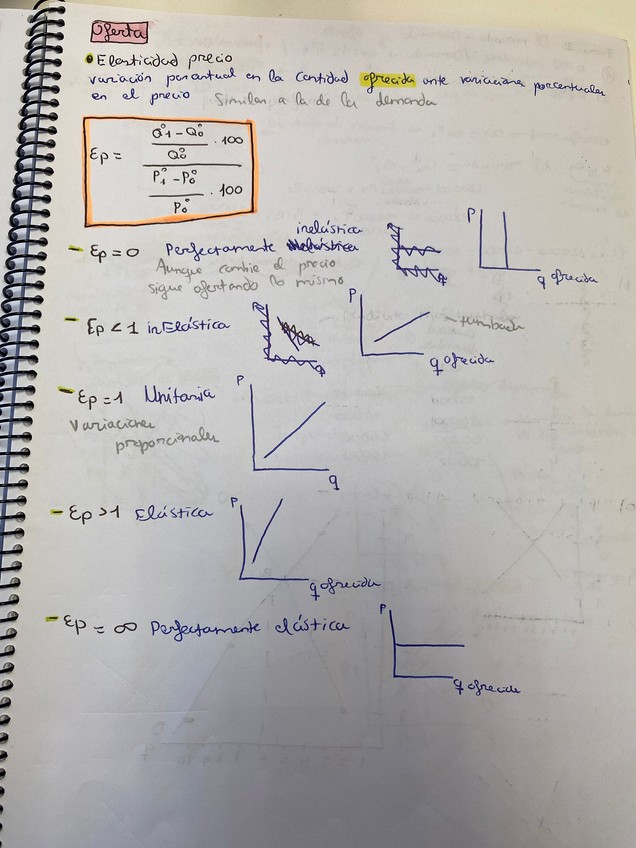 Oferta
• Elasticidad precio
variación porcentual en la cantidad ofrecida ante variaciones porcentuales
en el precio Similar a la de la demanda
Ep = ((Q1 - Q0) / Q0 · 100) / ((P1 - P0) / P0 · 100)
inelástica
- Ep = 0 Perfectamente
Aunque cambie el precio
sigue ofertando lo mismo
P
q ofrecida
- Ep < 1 inElástica
P
- tumbada
q ofrecida
- Ep = 1 Unitaria
Variaciones
proporcionales
P
q
- Ep > 1 Elástica
P
q ofrecida
- Ep = ∞ Perfectamente elástica
P
q ofrecida